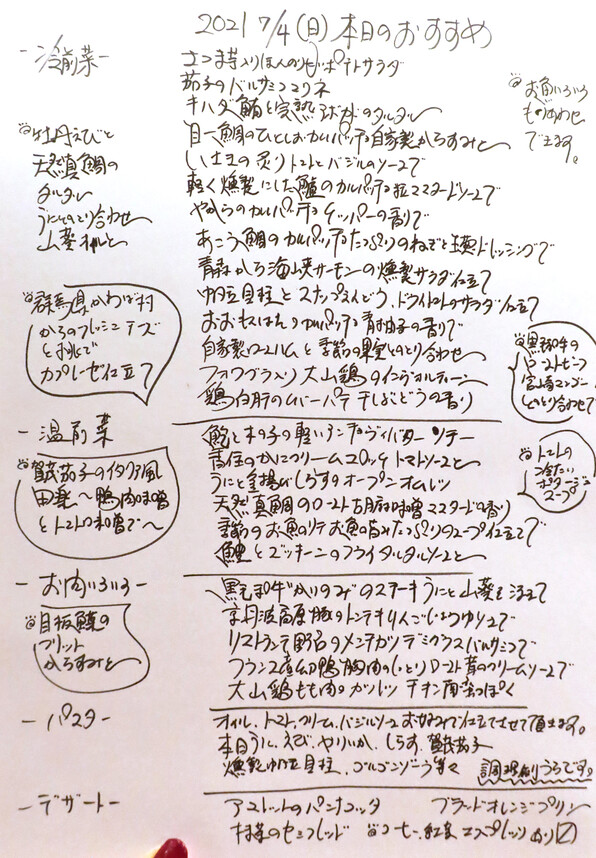 2021 7/4(日)本日のおすすめ
-冷前菜-
さつま芋入りほんのり甘いポテトサラダ
茄子のバルサミコマリネ
キハダ鮪と完熟アボカドのタルタル
目一鯛のひとしおカルパッチョ自家製からすみと
炙り トマトとバジルのソースで
軽く燻製にした鱸のカルパッチョ 粒マスタードソースで
やがらのカルパッチョ ケッパーの香りで
あこう鯛のカルパッチョ たっぷりのねぎと玉葱ドレッシングで
青森から海峡サーモンの燻製サラダ仕立て
帆立貝柱とスナップえんどう、ドライトマトのサラダ仕立て
カルパッチョ 青柚子の香りで
自家製ロースハムと季節の果実とのとり合わせ
フォワグラ入り大山鶏のインヴォルティーニ
鶏白肝のムーパテ 干しぶどうの香り
@お魚いろいろ
もりあわせ
できます。
@牡丹えびと
天然真鯛の
タルタル
うにとのとり合わせ
山葵
@群馬県かわば村
からのフレッシュチーズ
と桃で
カプレーゼ仕立て
@黒和牛の
ローストビーフ
宮崎マンゴー
とのとり合わせで
-温前菜-
鮑と木の子の軽いアンチョヴィバターソテー
香住のかにクリームコロッケ トマトソースと
うにと釜揚げしらすのオープンオムレツ
天然真鯛のロースト 胡麻味噌マスタードの香り
季節のお魚のソテー お魚の旨みたっぷりのスープ仕立て
鱧とズッキーニのフライ タルタルソースと
@賀茂茄子のイタリア風
田楽〜鴨肉味噌
とトマトの味噌で〜
@トマトの
冷たい
ポタージュ
スープ
-お肉いろいろ-
黒毛和牛"かいのみ"のステーキ うにと山葵を添えて
京丹波高原豚のトンテキ りんごしょうゆソースで
リストランテ野呂のメンチカツ デミグラスバルサミコで
フランス産仔鴨胸肉のしっとりロースト 茸のクリームソースで
大山鶏もも肉のカツレツ チキン南蛮っぽく
@目板鰈の
フリット
からすみと
-パスタ-
オイル、トマト、クリーム、バジルソース お好みで仕立てさせて頂きます。
本日うに、えび、やりいか、しらす、賀茂茄子
燻製帆立貝柱、ゴルゴンゾーラ等々
うらです。
-デザート-
アメレットのパンナコッタ ブラッドオレンジプリン
抹茶のセミフレッド @コーヒー、紅茶、エスプレッソあり